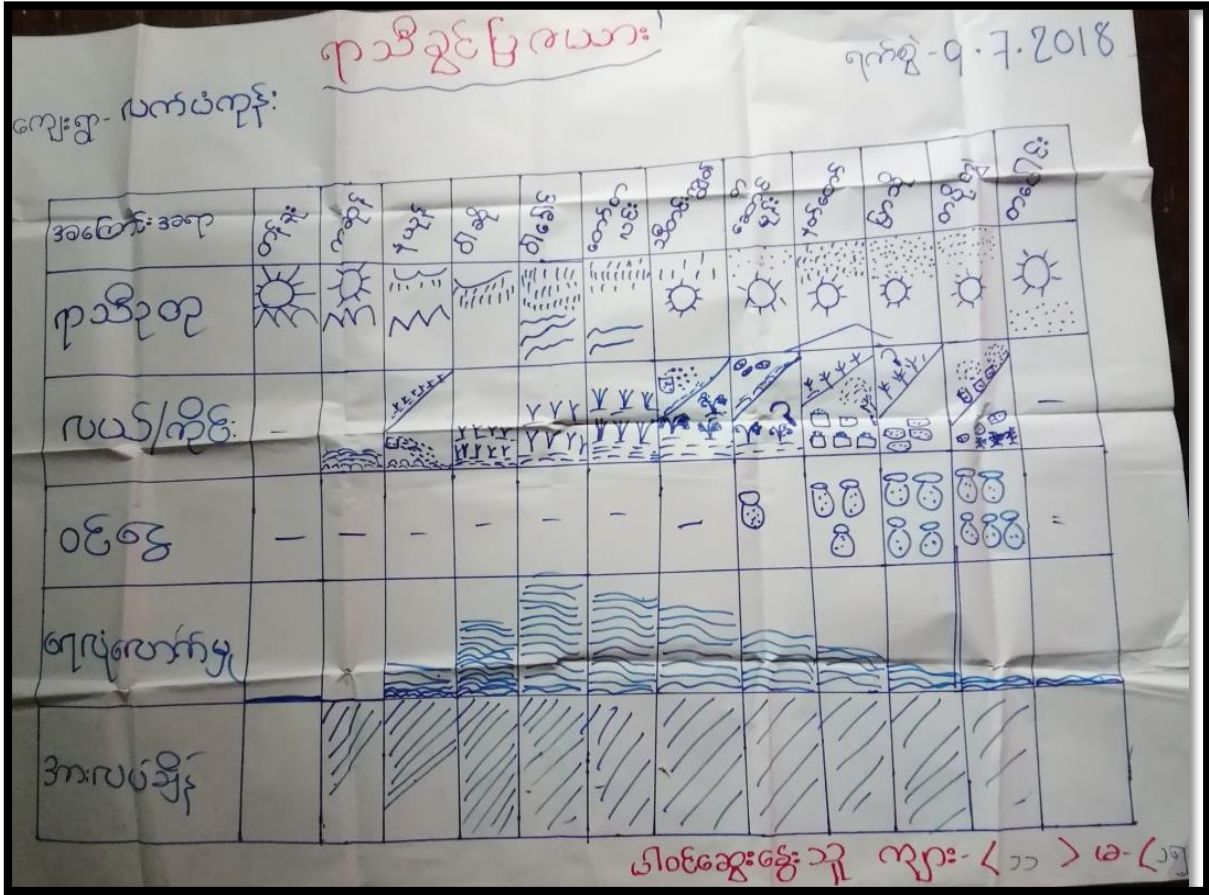 ရာသီခွင်ပြဇယား
ရက်စွဲ - 9.7.2018
ကျေးရွာ - လက်ပံကုန်း
အကြောင်းအရာ တန်ခူး ကဆုန် နယုန် ဝါဆို ဝါခေါင် တော်သလင်း သီတင်းကျွတ် တန်ဆောင်မုန်း နတ်တော် ပြာသို တပို့တွဲ တပေါင်း
ရာသီဥတု
လယ်/ကိုင်း - -
ဝင်ငွေ - - - - - - - =
ရေလုံလောက်မှု
အားလပ်ချိန်
ပါဝင်ဆွေးနွေးသူ ကျား - (၁၁) မ - (၁၅